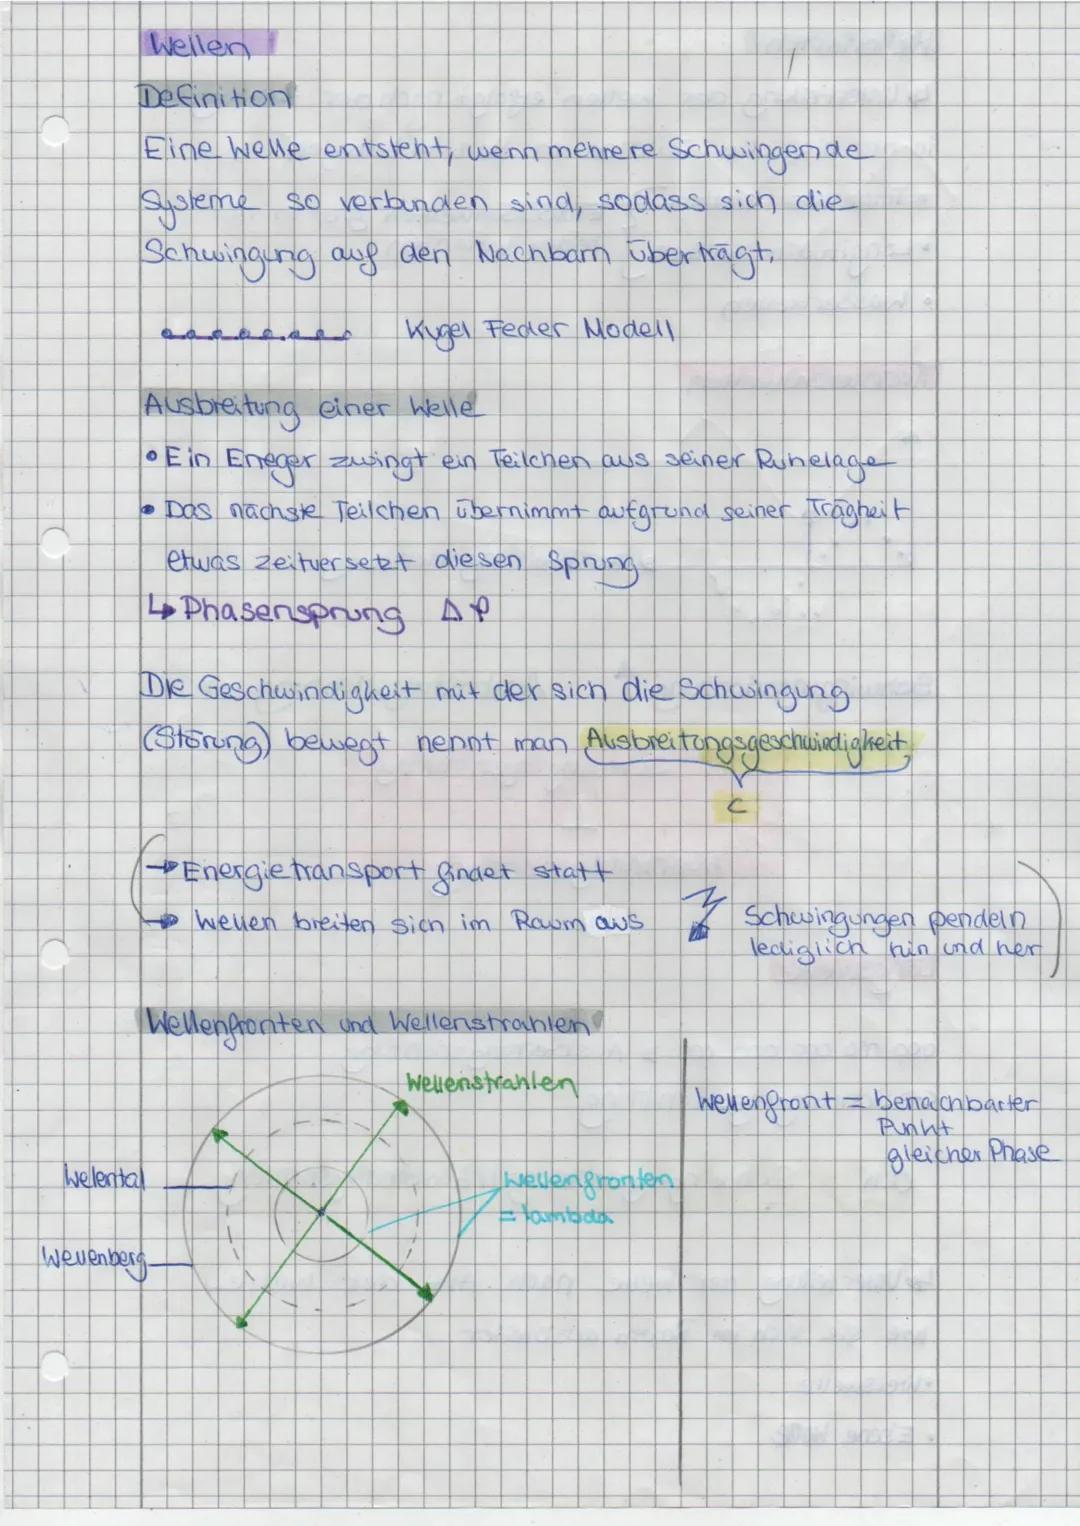 Wellen
Definition
Eine Welle entsteht, wenn mehrere Schwingende
Systeme so verbunden sind, sodass sich die
Schwingung auf den Nachbarn überträgt.
Kugel Feder Modell
Ausbreitung einer Welle
• Ein Erreger zwingt ein Teilchen aus seiner Ruhelage
• Das nächste Teilchen übernimmt aufgrund seiner Trägheit
etwas zeitversetzt diesen Sprung
↳ Phasensprung Δφ
Die Geschwindigkeit mit der sich die Schwingung
(Störung) bewegt nennt man Ausbreitungsgeschwindigkeit,
c
→ Energietransport findet statt
→ Wellen breiten sich im Raum aus
Schwingungen pendeln
lediglich hin und her
Wellenfronten und Wellenstrahlen
Wellenstrahlen
Wellenfront = benachbarter
Punkt
gleicher Phase
Welental
Wellenfronten
= lambda
Wellenberg